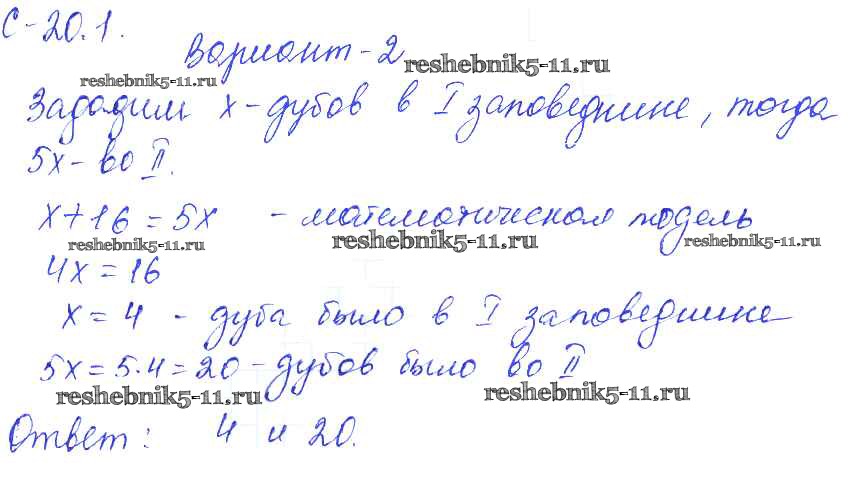 С-20.1.
Вариант-2
reshebnik5-11.ru
reshebnik5-11.ru
Зададим x-дубов в I заповеднике, тогда
5x- во II.
x+16=5x - математическая модель
reshebnik5-11.ru reshebnik5-11.ru reshebnik5-11.ru
4x=16
x=4 - дуба было в I заповеднике
5x=5·4=20-дубов было во II
reshebnik5-11.ru reshebnik5-11.ru
Ответ: 4 и 20.